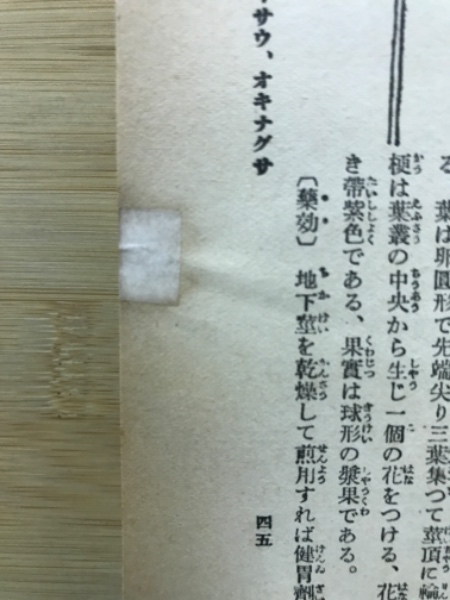 葉は卵圓形で先端尖り三葉集つて莖頂に輪
梗は葉叢の中央から生じ一個の花をつける、花
き帶紫色である、果實は球形の漿果である。
〔藥効〕 地下莖を乾燥して煎用すれば健胃劑
サウ、オキナグサ
四五